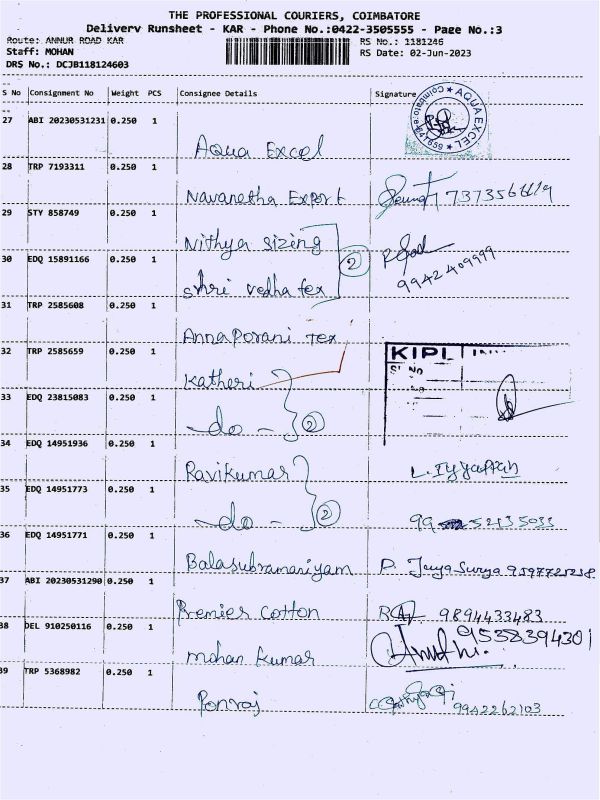 THE PROFESSIONAL COURIERS, COIMBATORE
Delivery Runsheet - KAR - Phone No.:0422-3505555 - Page No.:3
Route: ANNUR ROAD KAR
RS No.: 1181246
Staff: MOHAN
RS Date: 02-Jun-2023
DRS No.: DCJB118124603
S No Consignment No Weight PCS Consignee Details Signature
27 ABI 20230531231 0.250 1
Aqua Excel
AQUA EXCEL
28 TRP 7193311 0.250 1
Navanetha Export
29 STY 858749 0.250 1
Nithya sizing
30 EDQ 15891166 0.250 1
2
9942409999
Shri vedha tex
31 TRP 2585608 0.250 1
Annaporani Tex
32 TRP 2585659 0.250 1
KIPL
Katheri
33 EDQ 23815083 0.250 1
- do - 2
34 EDQ 14951936 0.250 1
Ravikumar L. Iyyappan
35 EDQ 14951773 0.250 1
- do - 2
36 EDQ 14951771 0.250 1
Balasubramaniyam
37 ABI 20230531290 0.250 1
Premier Cotton 9894433483
38 DEL 910250116 0.250 1
9538394301
mohan kumar
39 TRP 5368982 0.250 1
Ponraj 9942262103